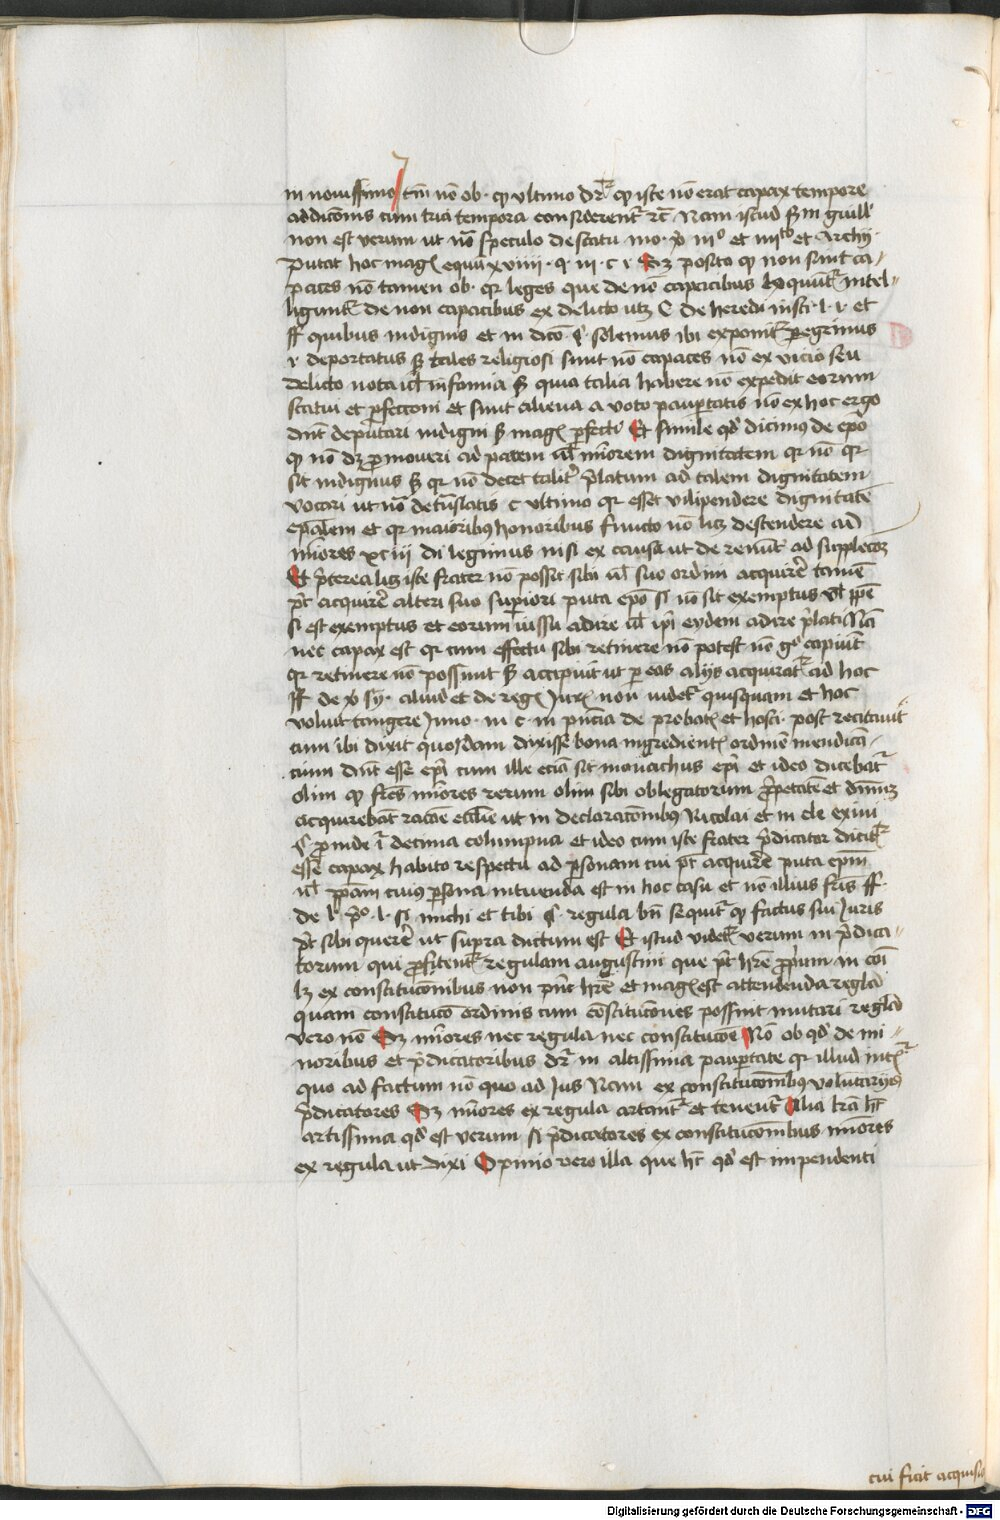 in nouissimo tm̄ nō ob · qͥ vltimo dr̄ qͥ iste nō erat capax tempore
addicōnis cum tria tempora considerentͬ rc̄ Nam istud sm̄ guill'
non est verum ut nō speculo de statu mo · ꝟ iiiº et iiiitº et Archy ·
putat hoc maḡ equū xviiii · q · iii · c ı Sz posito qͥ non sint ca/
paces nō tamen ob · qr leges que de nō capacibus loquūtͬ intel-
ligunt̄ de non capacibus ex delicto utz C de heredi insti · l · ı · et
ff quibus indignis et in dicō · § · solemus ibi exponit̄ peregrinus
ı deportatus sꝫ tales religiosi sunt nō capaces nō ex vicio seu
delicto nota ul' infamia sꝫ quia talia habere nō expedit eorum
statui et p̄fectoni et sunt aliena a voto paup̄tatis nō ex hoc ergo
dn̄t deputari indigni sꝫ maḡ p̄fecti Et simile qd' dicimus de ep̄o
qͥ nō dz promoueri ad parem ul' mi̅orem dignitatem qr nō qr
sit indignus sꝫ qr nō decet talit̾ p̄latum ad talem dignitatem
vocari ut nō de trāslatis c vltimo qr esset vilipendere dignitatē
ep̄alem et qr maioribus honoribus functo nō licz descendere ad
mi̅ores xciii di legimus nisi ex causa ut de renūt ad supplecoz
Et p̄terea licz iste frater nō possit sibi ul' suo ordini acquirē tamē
pt̄ acquirē alteri suo superiori puta ep̄o si nō sit exemptus vl' ppē
si est exemptus et eorum iussu adire ul' ip̄i eydem adire p̄lati Nā
nec capax est qr cum effectu sibi retinere nō potest nō gͦ capiūt
qr retinere nō possunt sꝫ accipiūt ut per eos alijs acquiratͬ ad hoc
ff de ꝟ sy · aliud et de reḡ Jur̄ non videt̾ quisquam et hoc
voluit tangere Inno · in c · in pn̄cia de probat̄ et hosti · post recitauit
cum ibi dixit quosdam dixisse bona ingredient̄ ordinē mendicā/
cium dn̄t esse ep̄i cum ille eciā sit monachus ep̄i et ideo dicebatͬ
olim qͥ frēs mi̅ores rerum olim sibi oblegatorum p̄petatē et dn̄iuz
acquirebāt racōe ecclīe ut in declaracōnibus Nicolai et in cle exiui
§ proinde ī decima columpna et ideo cum iste frater p̄dicator dicitͬ
esse capax habito respectu ad p̄sonam cui pt̄ acquirē puta ep̄m
ul' ppam cuius p̄sona intuenda est in hoc casu et nō illius fr̄is ff ·
de l' pͦ · l · si michi et tibi § · regula bn̄ sequitͬ qͥ factus sui Juris
pt̄ sibi querē ut supra dictum est Et istud videt̄ verum in p̄dica-
torum qui profitentͬ regulam augustini que pt̄ hr̄e propriū in cōi
lz ex constitucōnibus non pn̄t hr̄e et maḡ est attendenda reglā
quam constitucō ordinis cum cōstitucōnes possint mutari reglā
vero nō Sz mi̅ores nec regula nec constitucōe Nō ob qd' de mi-
noribus et p̄dicatoribus dr̄ in altissima paup̄tate qr illud intͬ
quo ad factum nō quo ad Jus Nam ex constitucōnibus voluntarijs
p̄dicatores Sz mi̅ores ex regula artant̾ et tenent̾ Alia lr̄a ht̄
artissima qd' est verum si p̄dicatores ex constitucōnibus mi̅ores
ex regula ut dixi Opinio vero illa que ht̄ qd' est impendenti
cui ficit acquisi
Digitalisierung gefördert durch die Deutsche Forschungsgemeinschaft - DFG